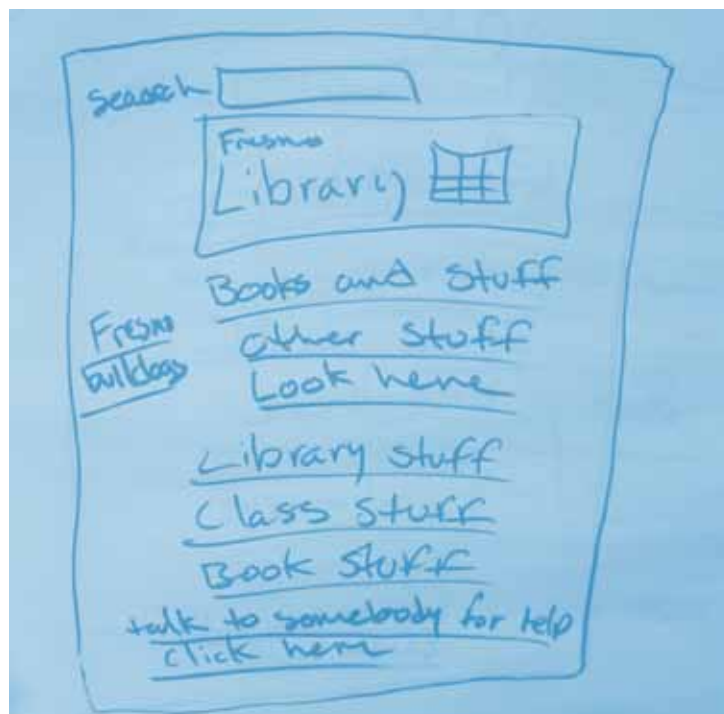 Search
Fresno
Library
Books and stuff
Fresno
bulldogs
other stuff
Look here
Library stuff
Class stuff
Book stuff
talk to somebody for help
click here